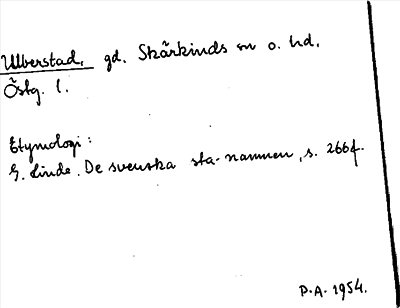 Ulberstad, gd. Skärkinds sn o. hd,
Östg. l.
Etymologi:
G. Linde. De svenska sta-namnen, s. 266f.
P.A. 1954.